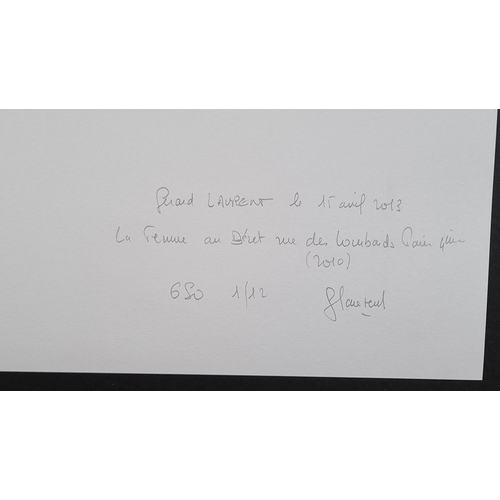 Gérard LAURENT le 15 avril 2013
La Femme au Béret rue des Lombards Paris
(2010)
650 1/12 GLaurent